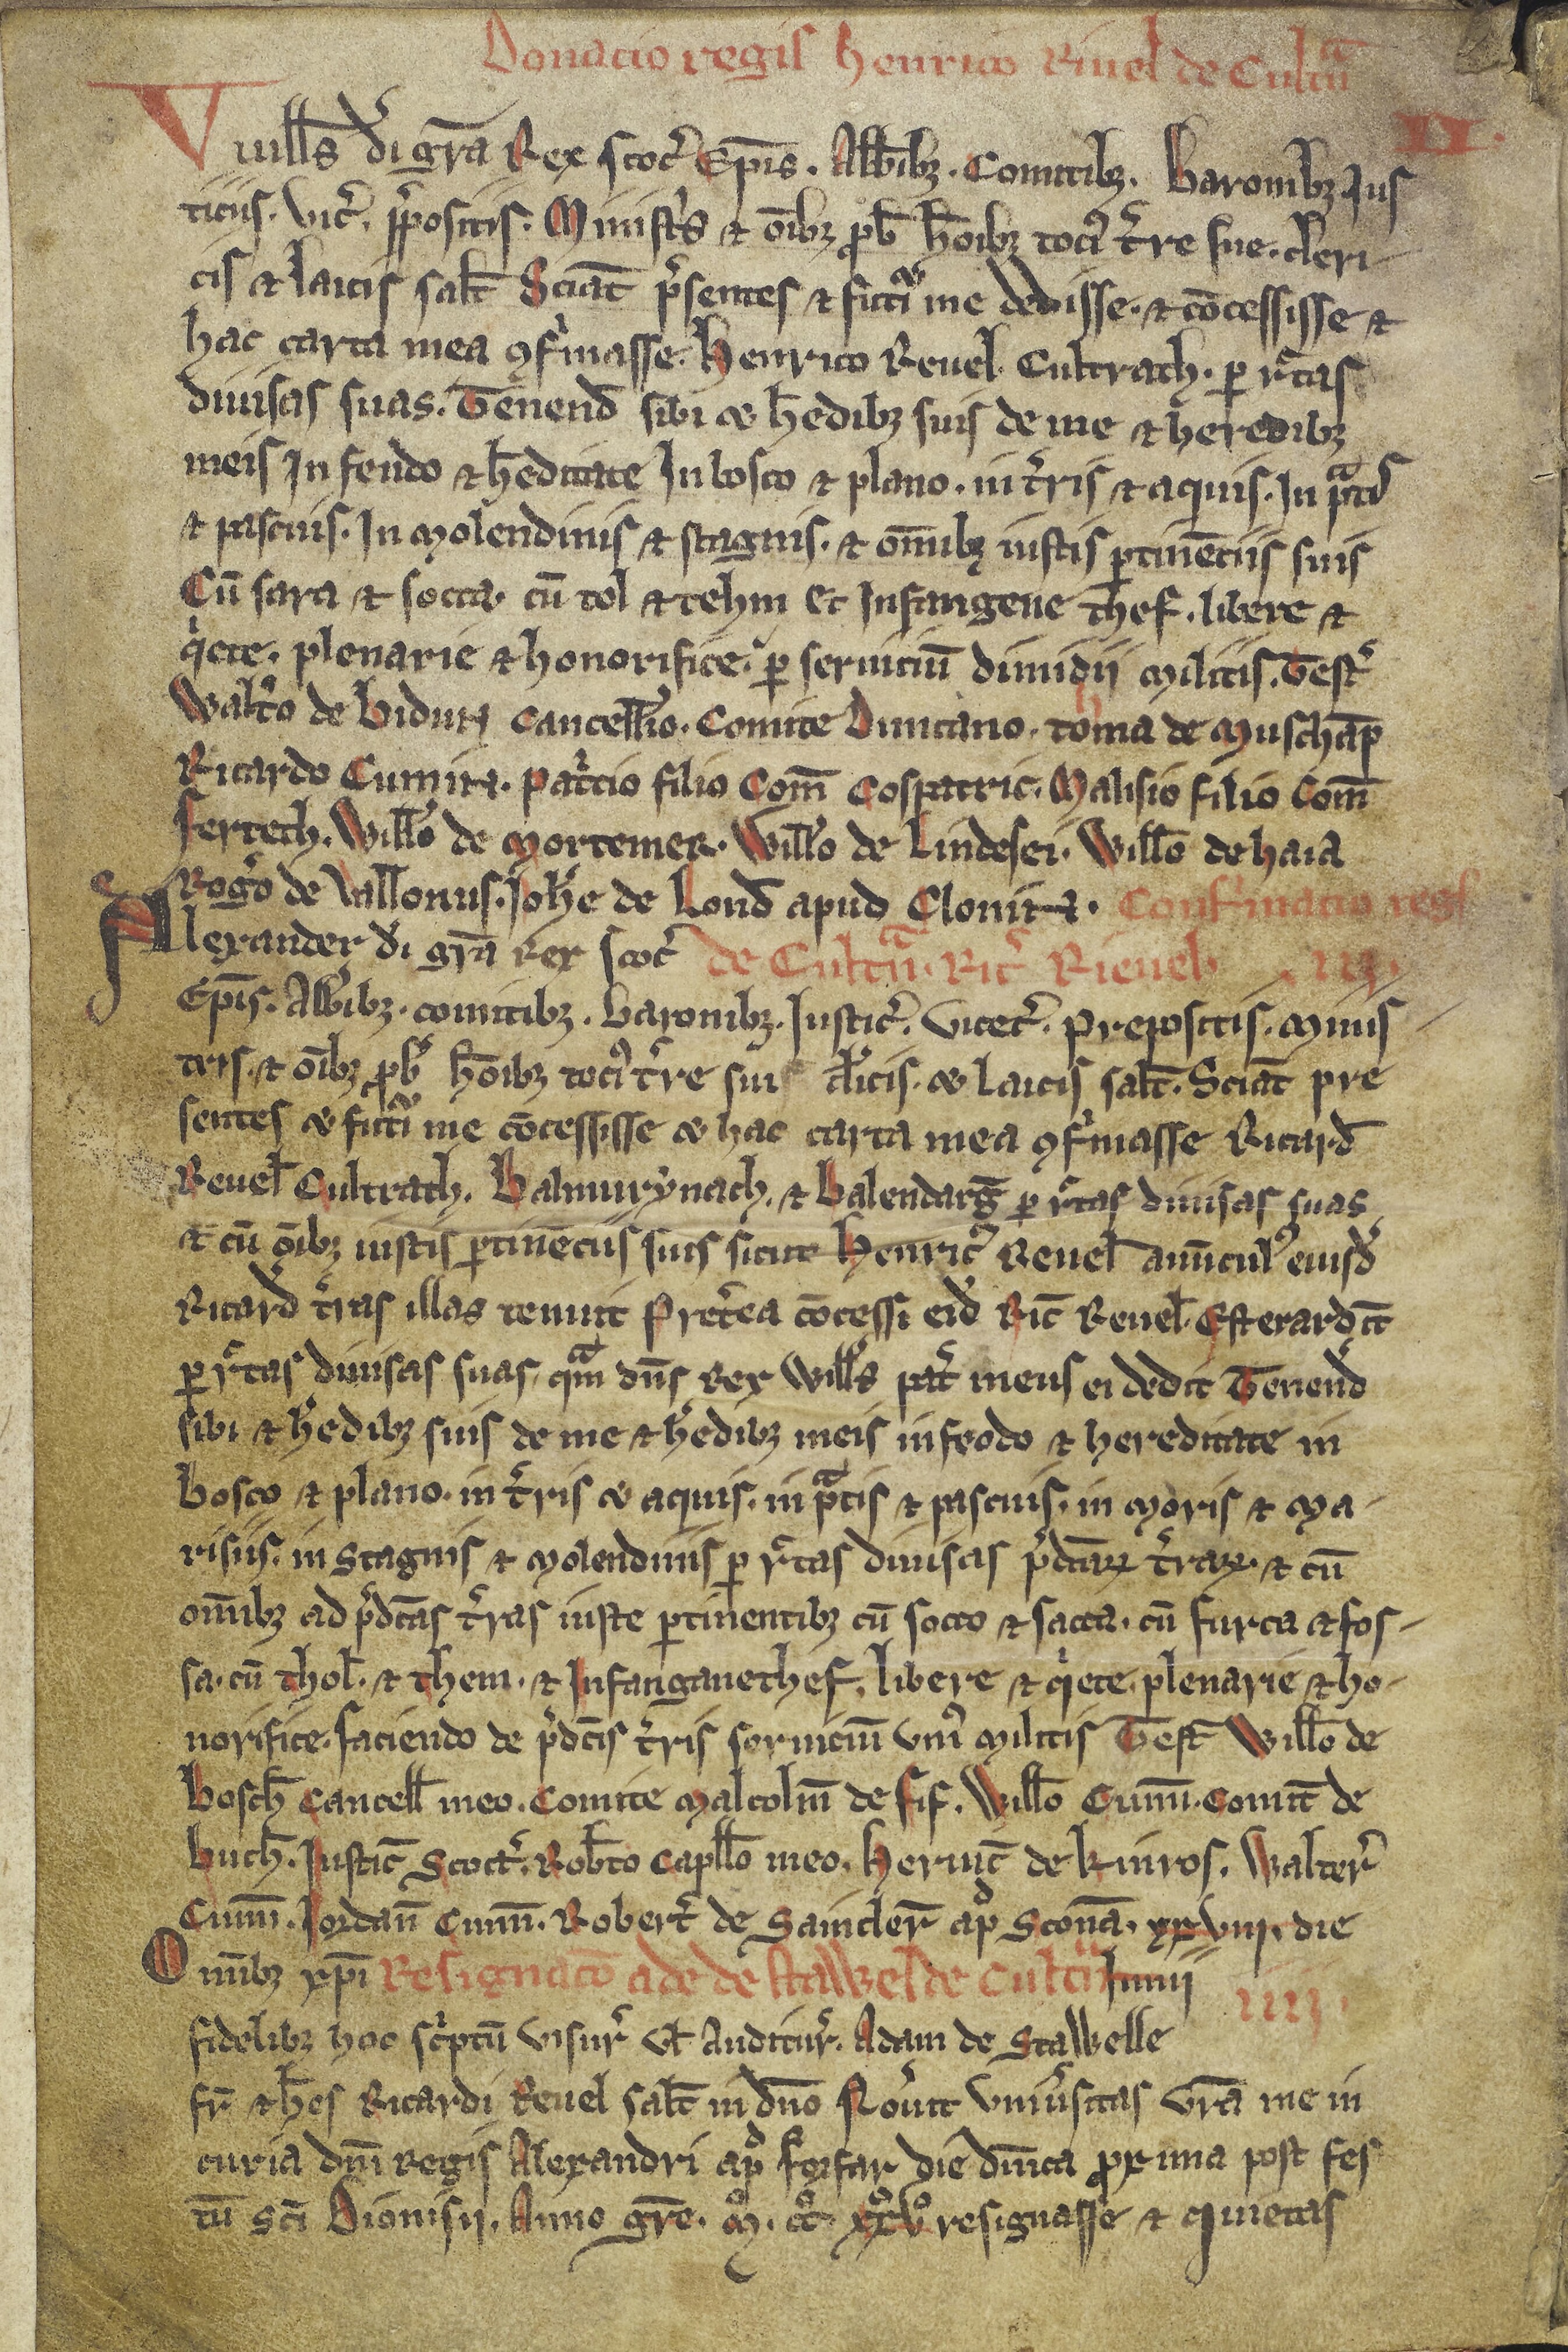 Donacio regis henrico Riuel de Cultᵃ
II.
Vuill̃s d̃i gr̃a Rex scoc̃ Ep̃is. Abb̃ibꝫ. Comitibꝫ. Baronibꝫ Jus
ticiis. Vic̃. p̃positis. Minist̃s ⁊ om̃ibꝫ ꝓb̃ ho͠ibꝫ tociꝰ t̃re sue. cleri
cis ⁊ laicis salt̃ Sciãt p̃sentes ⁊ fut̃i me dedisse. ⁊ co͠cessisse ⁊
hac carta mea ꝯf̃masse. Henrico Reuel. Cultrach. ꝑ r̃tas
diuisas suas. Tenend̃ sibi ⁊ h̃edibꝫ suis de me ⁊ heredibꝫ
meis In feudo ⁊ h̃editate In bosco ⁊ plano. in t̃ris ⁊ aquis. In pᵃtis
⁊ pascuis. In Molendinis ⁊ stagnis. ⁊ om̃ibꝫ iustis ꝑtine͠ciis suis
Cũ saca ⁊ socca. cũ tol ⁊ tehm et Infangene thef. libere ⁊
qⁱete. plenarie ⁊ honorifice. ꝑ seruiciũ dimidii Militis. Test̃
Walt̃o de bidun cancell̃io. Comite Duncano. toma de Muschãp
Ricardo Cumin. pat̃cio filio Com̃ Cospatric. Malisio filio Com̃
fertech. Will̃o de Mortemer. Will̃o de Lindesei. Will̃o de haia
Rog̃o de Vallonus. Joh̃e de Lond̃ apud Clonin. Confirmacio reg̃
Alexander d̃i gr̃a Rex scoc̃ de Cultᵃ. Ric̃ Rieuel. III.
Ep̃is. Abb̃ibꝫ. comitibꝫ. Baronibꝫ. Justic̃. Vicec̃. prepositis. Minis
tris. ⁊ om̃ibꝫ ꝓb̃ ho͠ibꝫ tociꝰ t̃re sui cl̃icis. ⁊ laicis salt̃. Sciãt pre
sentes ⁊ fut̃i me co͠cessisse ⁊ hac carta mea ꝯf̃masse Ricard̃
Reuel̃ Cultrach. Balmurynach. ⁊ Balendarg̃ ꝑ r̃tas diuisas suas
⁊ cũ om̃ibꝫ iustis ꝑtine͠ciis suis sicut Henricꝰ Reuel auũculꝰ eiusd̃
Ricard̃ t̃ras illas tenuit Pret̃ea co͠cessi eid̃ Ric̃ Reuel. Esterardit̃
ꝑ r̃tas diuisas suas. qᵃm dñs Rex Will̃s pat̃ meus ei dedit Tenend̃
sibi ⁊ h̃edibꝫ suis de me ⁊ h̃edibꝫ meis in feodo ⁊ hereditate in
bosco ⁊ plano. in t̃ris ⁊ aquis. in pᵃtis ⁊ pascuis. in Moris ⁊ Ma-
risiis. in stagnis ⁊ Molendinis ꝑ r̃tas diuisas p̃dc̃aꝝ t̃raꝝ. ⁊ cũ
om̃ibꝫ ad p̃dc̃as t̃ras iuste ꝑtinentibꝫ cũ socco ⁊ sacca. cũ furca ⁊ fos-
sa. cũ thol. ⁊ them. ⁊ Infanganethef. libere ⁊ qⁱete. plenarie ⁊ ho-
norifice. faciendo de p̃dc̃is t̃ris seruiciũ vniꝰ Militis Test̃ Will̃o de
Bosch̃ Cancell̃ meo. Comite Malcolm̃ de fif. Will̃o Cumĩ. Comit̃ de
buch̃. Justic̃ Scoc̃. Rob̃to Capll̃o meo. Heruic̃ de kinros. Walter̃
Cumĩ. Jordañ Cumĩ. Robert̃ de Saincler̃ apᵈ Sconã. xxviii. die
Omibꝫ xp̃i Resignac̃o ade de stawel de Cultᵃ Junii IIII.
fidelibꝫ hoc sc̃ptũ visur̃ vl̃ Auditur̃. Adam de Stawelle
fr̃ ⁊ h̃es Ricardi Reuel Salt̃ in dño Nou̾it vniu̾sitas vr̃a me in
curia dñi Regis Alexandri apᵈ forfar die dñica ꝓxima post fes
tũ Sc̃i Dionisii. Anno gr̃e. Mº. ccº. xxºvº resignasse ⁊ quietas